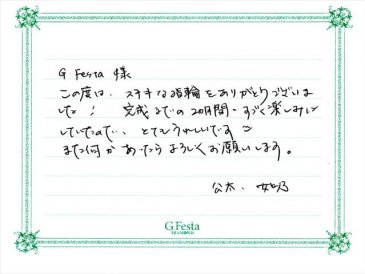 G Festa 様
この度は、ステキな指輪をありがとうございま
した！ 完成までの2ヶ月間、すごく楽しみに
していたので、とてもうれしいです
また何かあったらよろしくお願いします。
公太、
G.Festa
DIAMOND